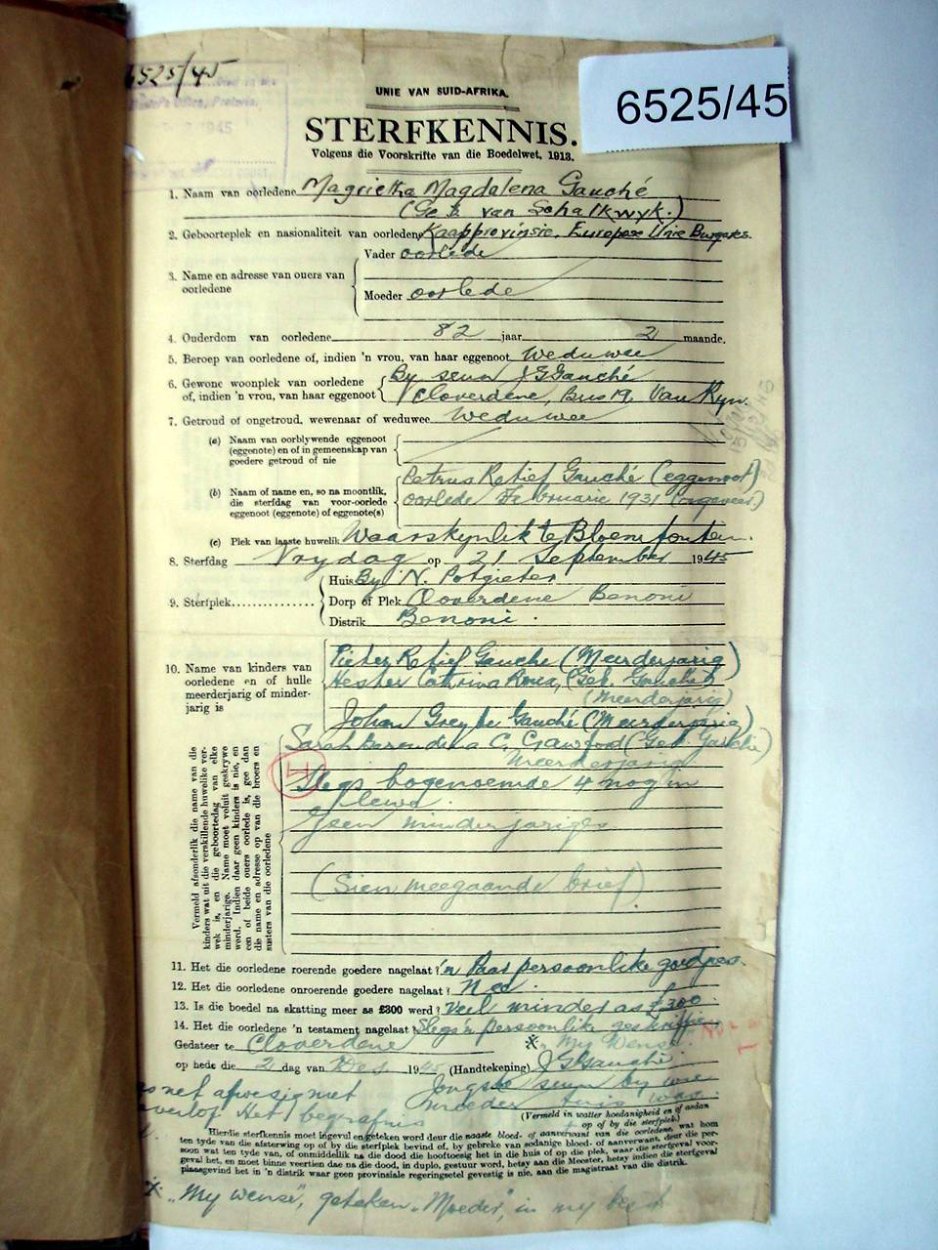 6525/45
6525/45
UNIE VAN SUID-AFRIKA.
STERFKENNIS.
Volgens die Voorskrifte van die Boedelwet, 1913.
1. Naam van oorledene Magrietha Magdalena Gauché
(Geb. van Schalkwyk.)
2. Geboorteplek en nasionaliteit van oorledene Kaapprovinsie. Europese Unie Burgeres.
3. Name en adresse van ouers van oorledene
Vader oorlede
Moeder oorlede
4. Ouderdom van oorledene 82 jaar 2 maande.
5. Beroep van oorledene of, indien 'n vrou, van haar eggenoot Weduwee
6. Gewone woonplek van oorledene of, indien 'n vrou, van haar eggenoot
By seun J G Gauché
Cloverdene, Bus 19, Van Ryn.
7. Getroud of ongetroud, wewenaar of weduwee Weduwee
(a) Naam van oorblywende eggenoot
(eggenote) en of in gemeenskap van
goedere getroud of nie
(b) Naam of name en, so na moontlik,
die sterfdag van voor-oorlede
eggenoot (eggenote) of eggenote(s)
Petrus Retief Gauché (eggenoot)
oorlede Februarie 1931 (ongeveer)
(c) Plek van laaste huwelik Waarskynlik te Bloemfontein.
8. Sterfdag Vrydag op 21 September 1945
9. Sterfplek
Huis By N. Potgieter
Dorp of Plek Cloverdene Benoni
Distrik Benoni.
10. Name van kinders van
oorledene en of hulle
meerderjarig of minder-
jarig is
Pieter Retief Gauche (Meerderjarig)
Hester Cathrina (Geb. Gauché)
(Meerderjarig)
Johan Greybe Gauché (Meerderjarig)
Sarah Berendina C. Crawford (Geb. Gauché)
Meerderjarig
4
Slegs bogenoemde 4 nog in
lewe.
Geen minderjariges
(Sien meegaande brief)
Vermeld afsonderlik die name van die
kinders wat uit die verskillende huwelike ver-
wek is, en die geboortedag van elke
minderjarige. Name moet voluit geskrywe
word. Indien daar geen kinders is nie, en
een of beide ouers oorlede is, gee dan
die name en adresse op van die broers en
susters van die oorledene
11. Het die oorledene roerende goedere nagelaat? 'n Paar persoonlike goedjies.
12. Het die oorledene onroerende goedere nagelaat? Nee.
13. Is die boedel na skatting meer as £300 werd? Veel minder as £300.
14. Het die oorledene 'n testament nagelaat? Slegs 'n persoonlike geskrif
Gedateer te Cloverdene "My Wense".
op hede die 2 dag van Des 1945 (Handtekening) J G Gauché.
Jongste seun by wie
moeder tuis was.
(Vermeld in watter hoedanigheid en of andan
op of by die sterfplek)
net afwesig met
verlof. Het begrafnis
Hierdie sterfkennis moet ingevul en geteken word deur die naaste bloed- of aanverwant van die oorledene, wat hom
ten tyde van die afsterwing op of by die sterfplek bevind of, by gebreke van sodanige bloed- of aanverwant, deur die per-
soon wat ten tyde van, of onmiddellik na die dood die hooftoesig het in die huis of op die plek, waar die sterfgeval voor-
geval het, en moet binne veertien dae na die dood, in duplo, gestuur word, hetsy aan die Meester, hetsy indien die sterfgeval
plaasgevind het in 'n distrik waar geen provinsiale regeringsetel gevestig is nie, aan die magistraat van die distrik.
x. "My wense", geteken "Moeder", in my besit